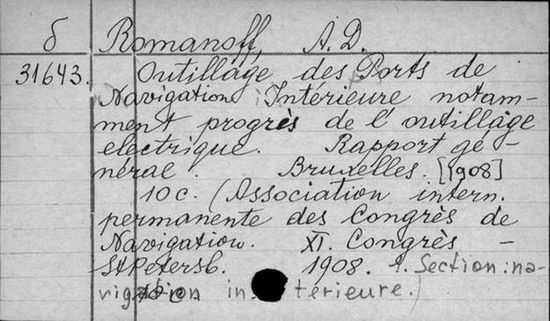 б Romanoff, A. D.
31643. Outillage des Ports de
Navigation Intérieure notam-
ment progrès de l'outillage
electrique. Rapport gé-
néral. Bruxelles. [1908]
10 c. (Association intern.
permanente des Congrès de
Navigation. XI. Congrès -
St Petersb. 1908. 1. Section: na-
vigation intérieure.)